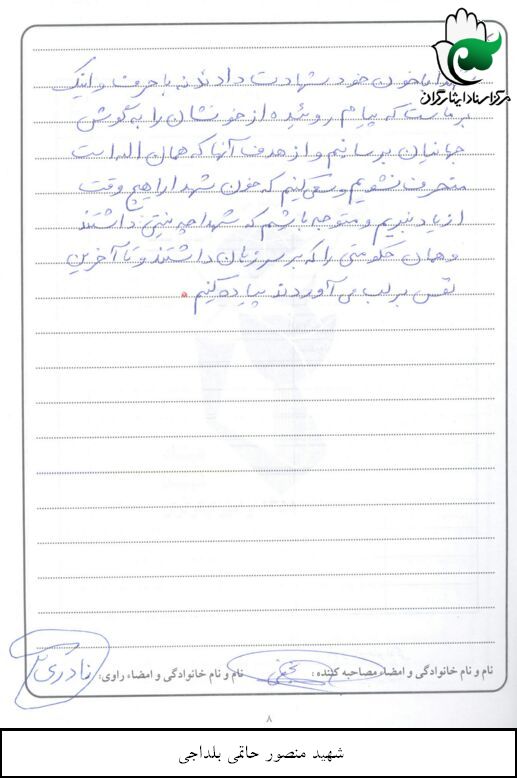 مرکز اسناد ایثارگران
با خون خود شهادت دادند نه با حرف و اینک
بر ماست که پیام روئیده از خونشان را به گوش
جهانیان برسانیم و از هدف آنها که همان الله است
منحرف نشویم و سعی کنیم که خون شهدا را هیچ وقت
از یاد نبریم و متوجه باشیم که شهدا چه نیتی داشتند
و همان حکومتی را که بر سر زبان داشتند و تا آخرین
نفس بر لب می آوردند پیاده کنیم.
نام و نام خانوادگی و امضاء مصاحبه کننده: نام و نام خانوادگی و امضاء راوی: نادری
۸
شهید منصور حاتمی بلداجی